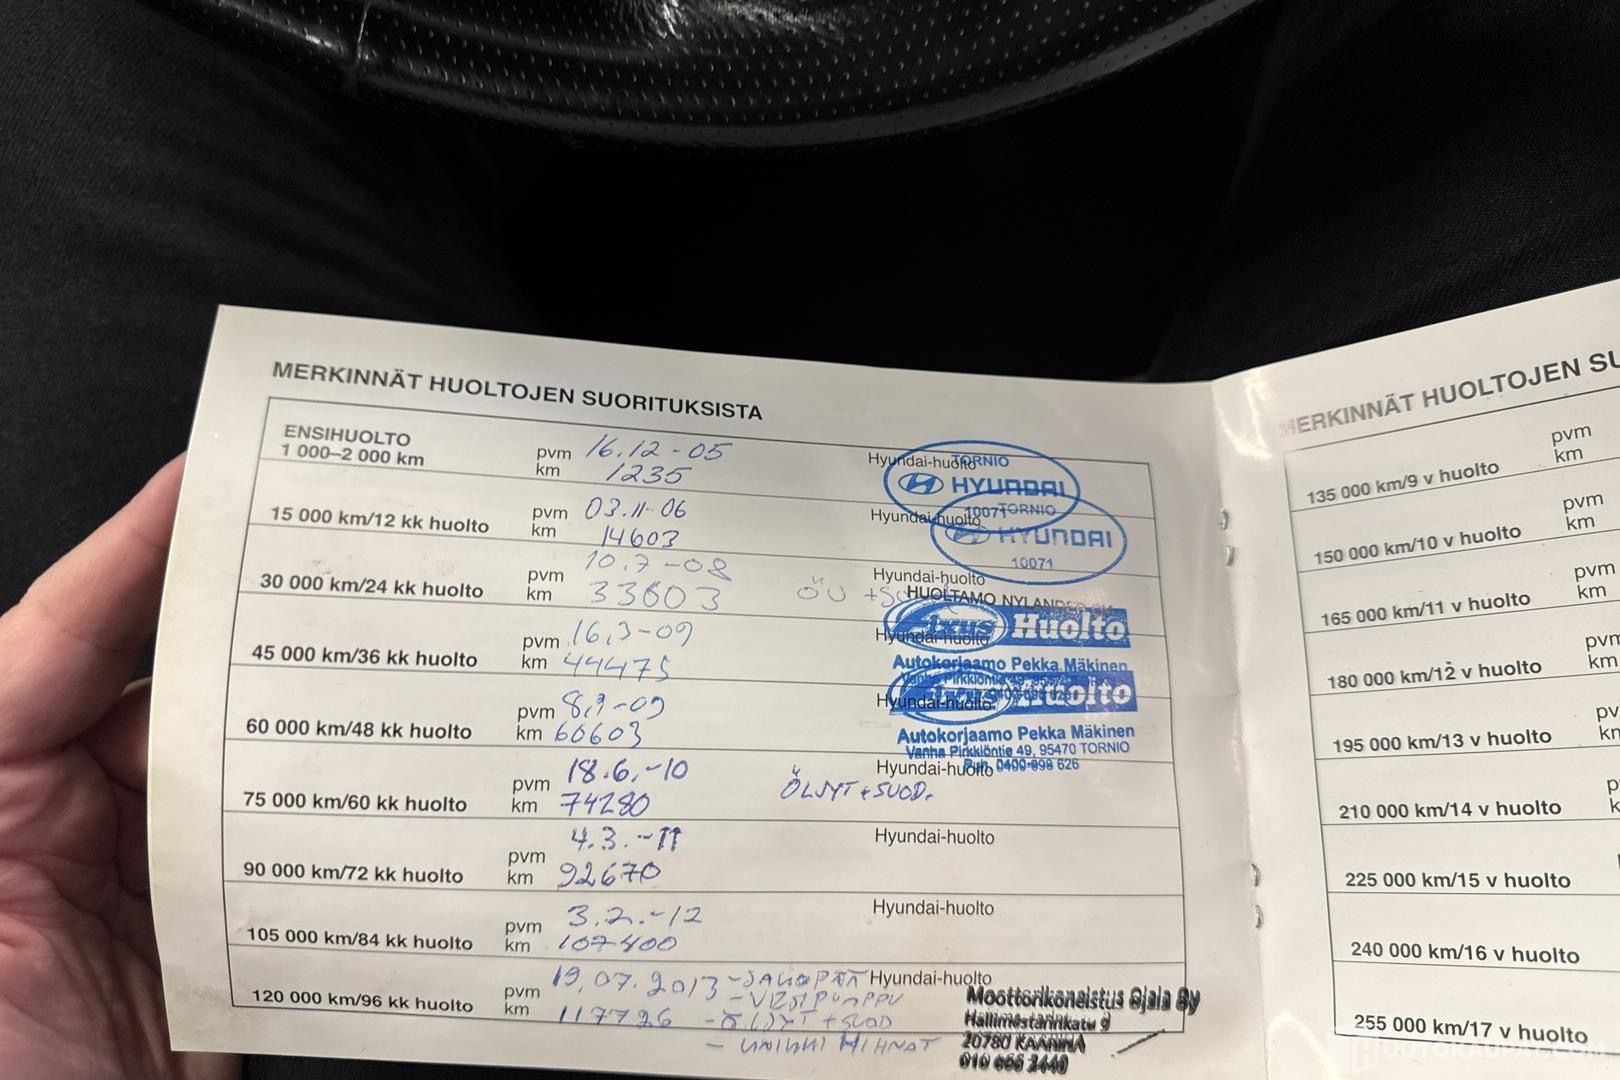 MERKINNÄT HUOLTOJEN SUORITUKSISTA
ENSIHUOLTO
1 000–2 000 km
pvm 16.12-05
km 1235
Hyundai-huolto
TORNIO
HYUNDAI
10071
15 000 km/12 kk huolto
pvm 03.11-06
km 14603
Hyundai-huolto
TORNIO
HYUNDAI
10071
30 000 km/24 kk huolto
pvm 10.7-08
km 33603
Hyundai-huolto
HUOLTAMO NYLANDER OY
45 000 km/36 kk huolto
pvm 16.3-09
km 44475
Hyundai-huolto
Fixus Huolto
Autokorjaamo Pekka Mäkinen
60 000 km/48 kk huolto
pvm
km 60603
Hyundai-huolto
Fixus Huolto
Autokorjaamo Pekka Mäkinen
Vanha Pirkkiöntie 49, 95470 TORNIO
Puh. 0400-898 626
75 000 km/60 kk huolto
pvm 18.6.-10
km 74280
ÖLJYT+SUOD.
Hyundai-huolto
90 000 km/72 kk huolto
pvm 4.3.-11
km 92670
Hyundai-huolto
105 000 km/84 kk huolto
pvm 3.2.-12
km 107400
Hyundai-huolto
120 000 km/96 kk huolto
pvm 19.07.2013 -JAKOPÄÄ
Hyundai-huolto
-VESIPUMPPU
km 117726 -ÖLJYT+SUOD
- HIHNAT
Moottorikoneistus Ojala Oy
Hallimestarinkatu 9
20780 KAARINA
010 666 2440
MERKINNÄT HUOLTOJEN SU
135 000 km/9 v huolto
pvm
km
150 000 km/10 v huolto
pvm
km
165 000 km/11 v huolto
pvm
km
180 000 km/12 v huolto
pvm
km
195 000 km/13 v huolto
210 000 km/14 v huolto
225 000 km/15 v huolto
240 000 km/16 v huolto
255 000 km/17 v huolto
HUUTOKAUPAT.COM